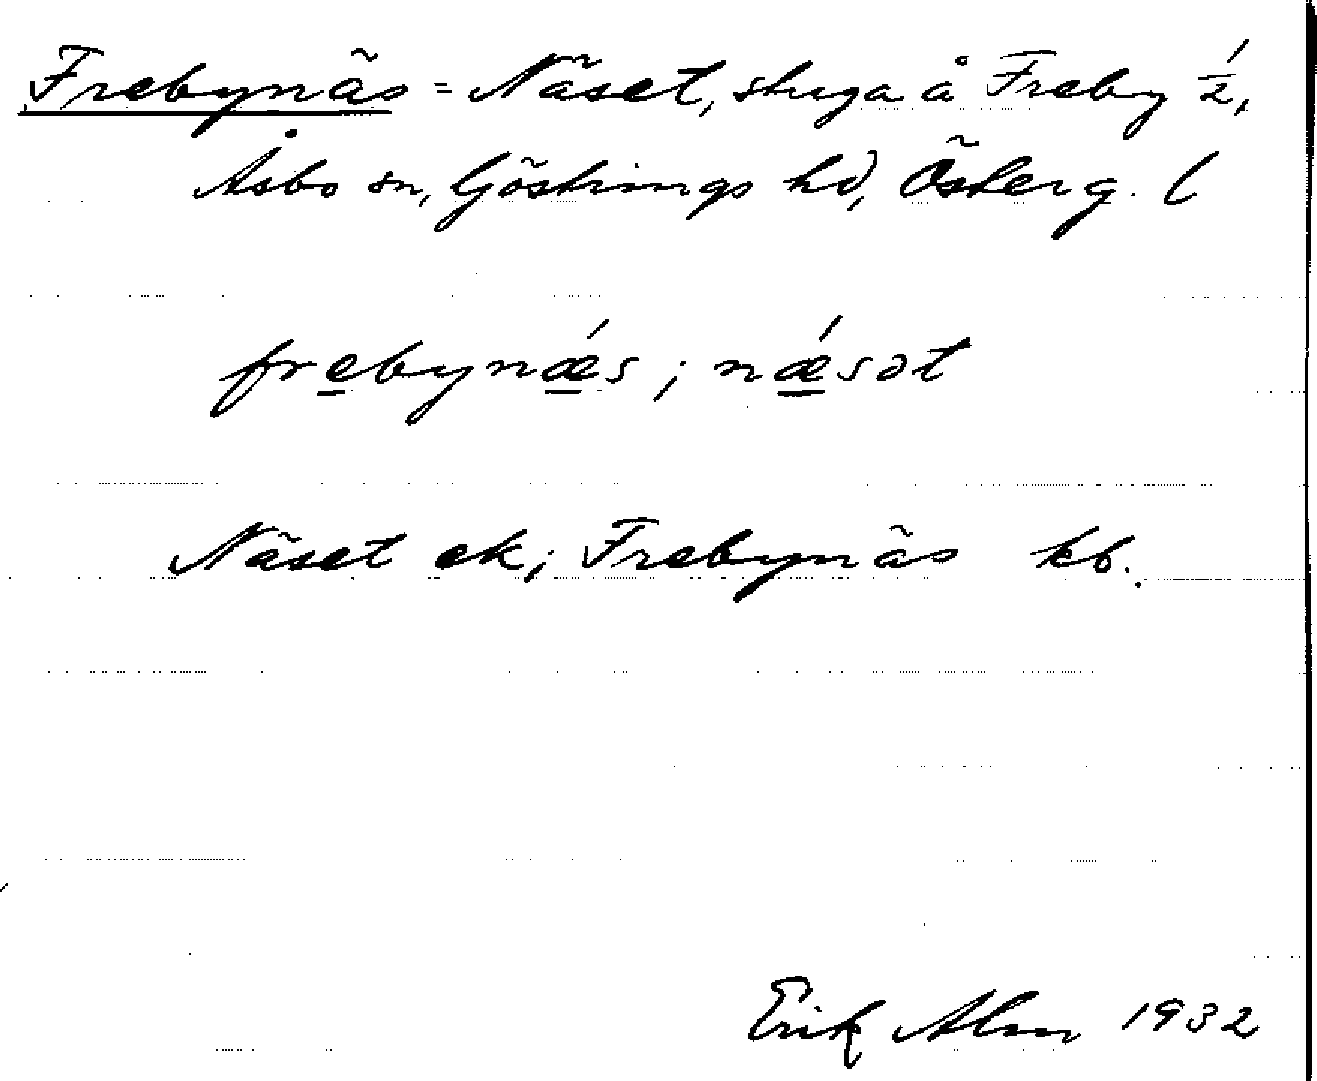 Frebynäs = Näset, stuga å Freby ½,
Åsbo sn, Göstrings hd, Österg. l
frebynǽs; nǽsət
Näset ek; Frebynäs kb.
Erik Alm 1932